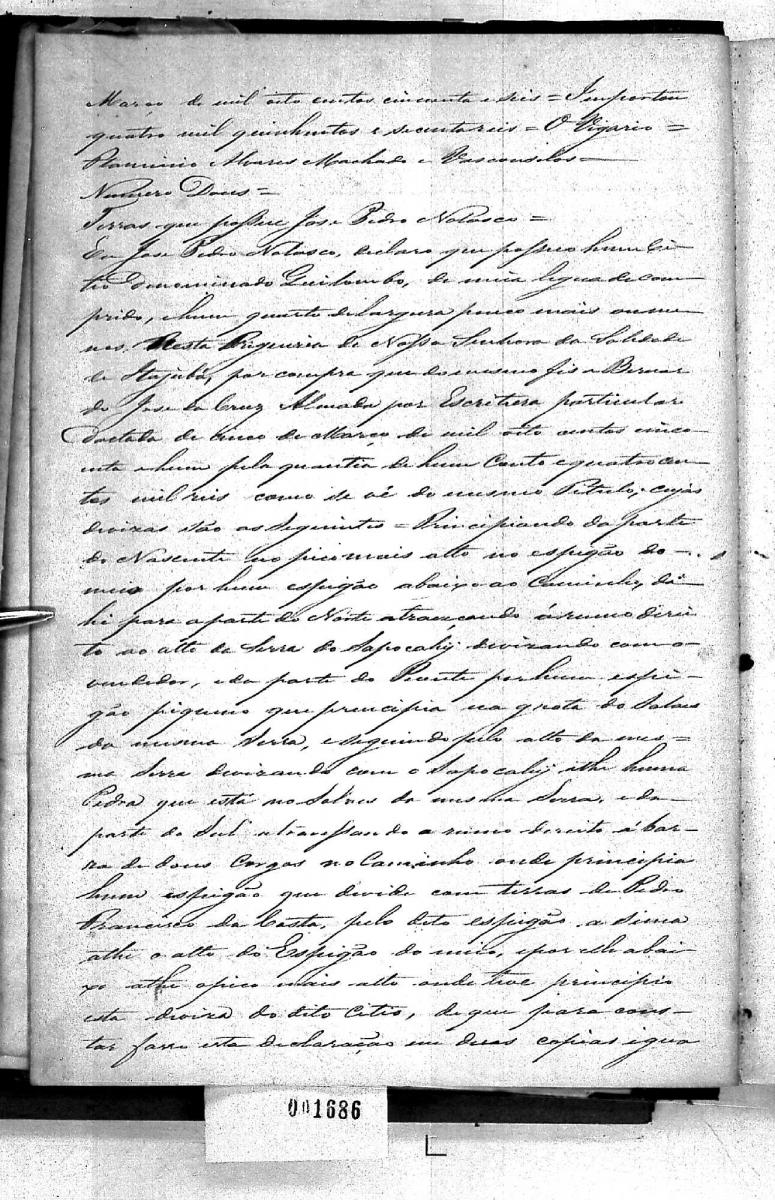 Março de mil oito centos cincoenta e seis = Importou
quatro mil quinhentos e secenta reis = O Vigario =
Flaminio Alvares Machado e Vasconselos =
Numero Dous =
Terras que possue José Pedro Nolasco =
Eu José Pedro Nolasco, declaro que possuo hum Ci-
tio denominado Quilombo, de meia legua de com-
prido, e hum quarto de largura pouco mais ou me-
nos, Nesta Freguezia de Nossa Senhora da Solidade
de Itajubá, por compra que do mesmo fis a Bernar
do Jose da Cruz Almada por Escritura particular
Dactada de cinco de Março de mil oito centos cinco-
enta e hum pela quantia de hum Conto e quatro cen-
tos mil reis como se vê do mesmo Titulo; cujas
divizas são as Seguintes = Principiando da parte
do Nascente no pico mais alto no espigão do
meio por hum espigão abaixo ao Caminho, da-
hi para a parte do Norte atraveçando á rumo direi-
to ao alto da Serra do Sapocahy devizando com o
vendedor, e da parte do Poente por hum espi-
gão piqueno que principia na grota do
da mesma Serra, e seguindo pelo alto da mes-
ma Serra devizando com o Sapocahy athe huma
Pedra que está no da mesma Serra, e da
parte do Sul atravessando a rumo direito á bar-
ra de dous Corgos no Caminho onde principia
hum espigão que devide com terras de Pedro
Francisco da Costa, pelo dito espigão a sima
athe o alto do Espigão do meio, e por elle abai-
xo athe o pico mais alto onde teve principio
esta deviza do dito Citio, de que para cons-
tar fasso esta declaração em duas copias igua
001686